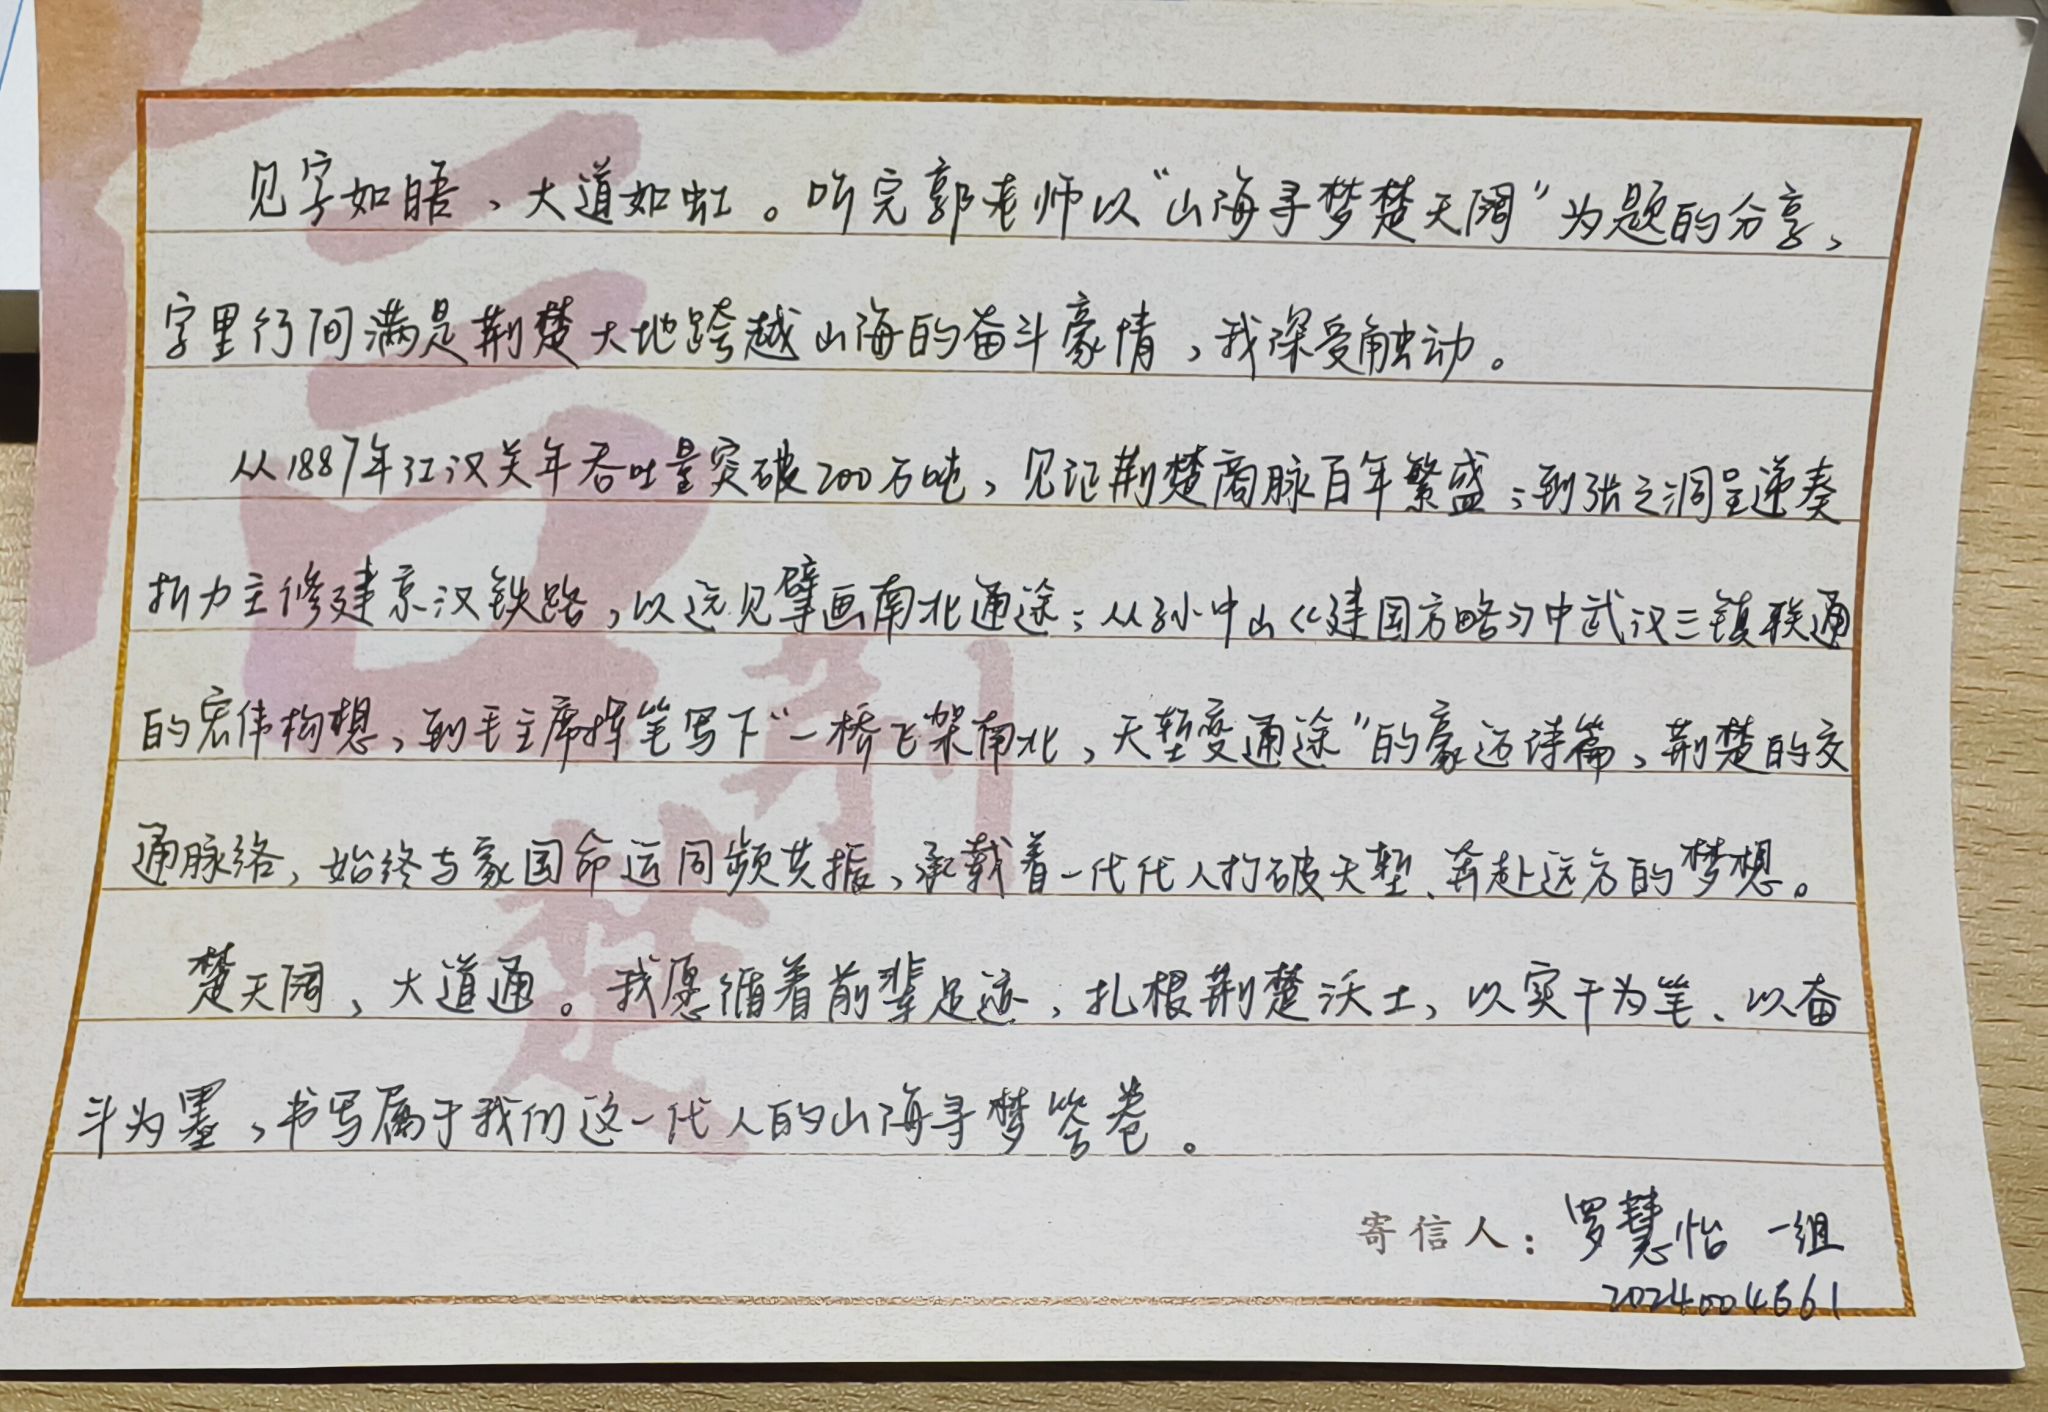 见字如晤，大道如虹。听完郭老师以“山海寻梦楚天阔”为题的分享，
字里行间满是荆楚大地跨越山海的奋斗豪情，我深受触动。
从1887年江汉关年吞吐量突破200万吨，见证荆楚商脉百年繁盛；到张之洞呈递奏
折力主修建京汉铁路，以远见擘画南北通途；从孙中山《建国方略》中武汉三镇联通
的宏伟构想，到毛主席挥笔写下“一桥飞架南北，天堑变通途”的豪迈诗篇，荆楚的交
通脉络，始终与家国命运同频共振，承载着一代代人打破天堑、奔赴远方的梦想。
楚天阔，大道通。我愿循着前辈足迹，扎根荆楚沃土，以实干为笔、以奋
斗为墨，书写属于我们这一代人的山海寻梦答卷。
寄信人：罗慧怡 一组
2024004661
信
荆楚